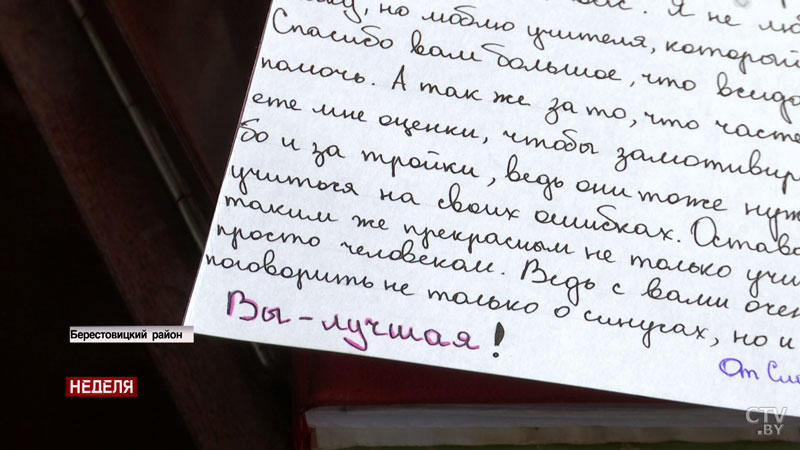 Я не лю
но люблю учителя, который
Спасибо вам большое, что всегда
помочь. А так же за то, что часте
ете мне оценки, чтобы замотивир
бо и за тройки, ведь они тоже нуж
учиться на своих ошибках. Остава
таким же прекрасным не только учи
просто человеком. Ведь с вами очен
поговорить не только о синусах, но и
Вы - лучшая!
От
Берестовицкий район
НЕДЕЛЯ
CTV
.BY